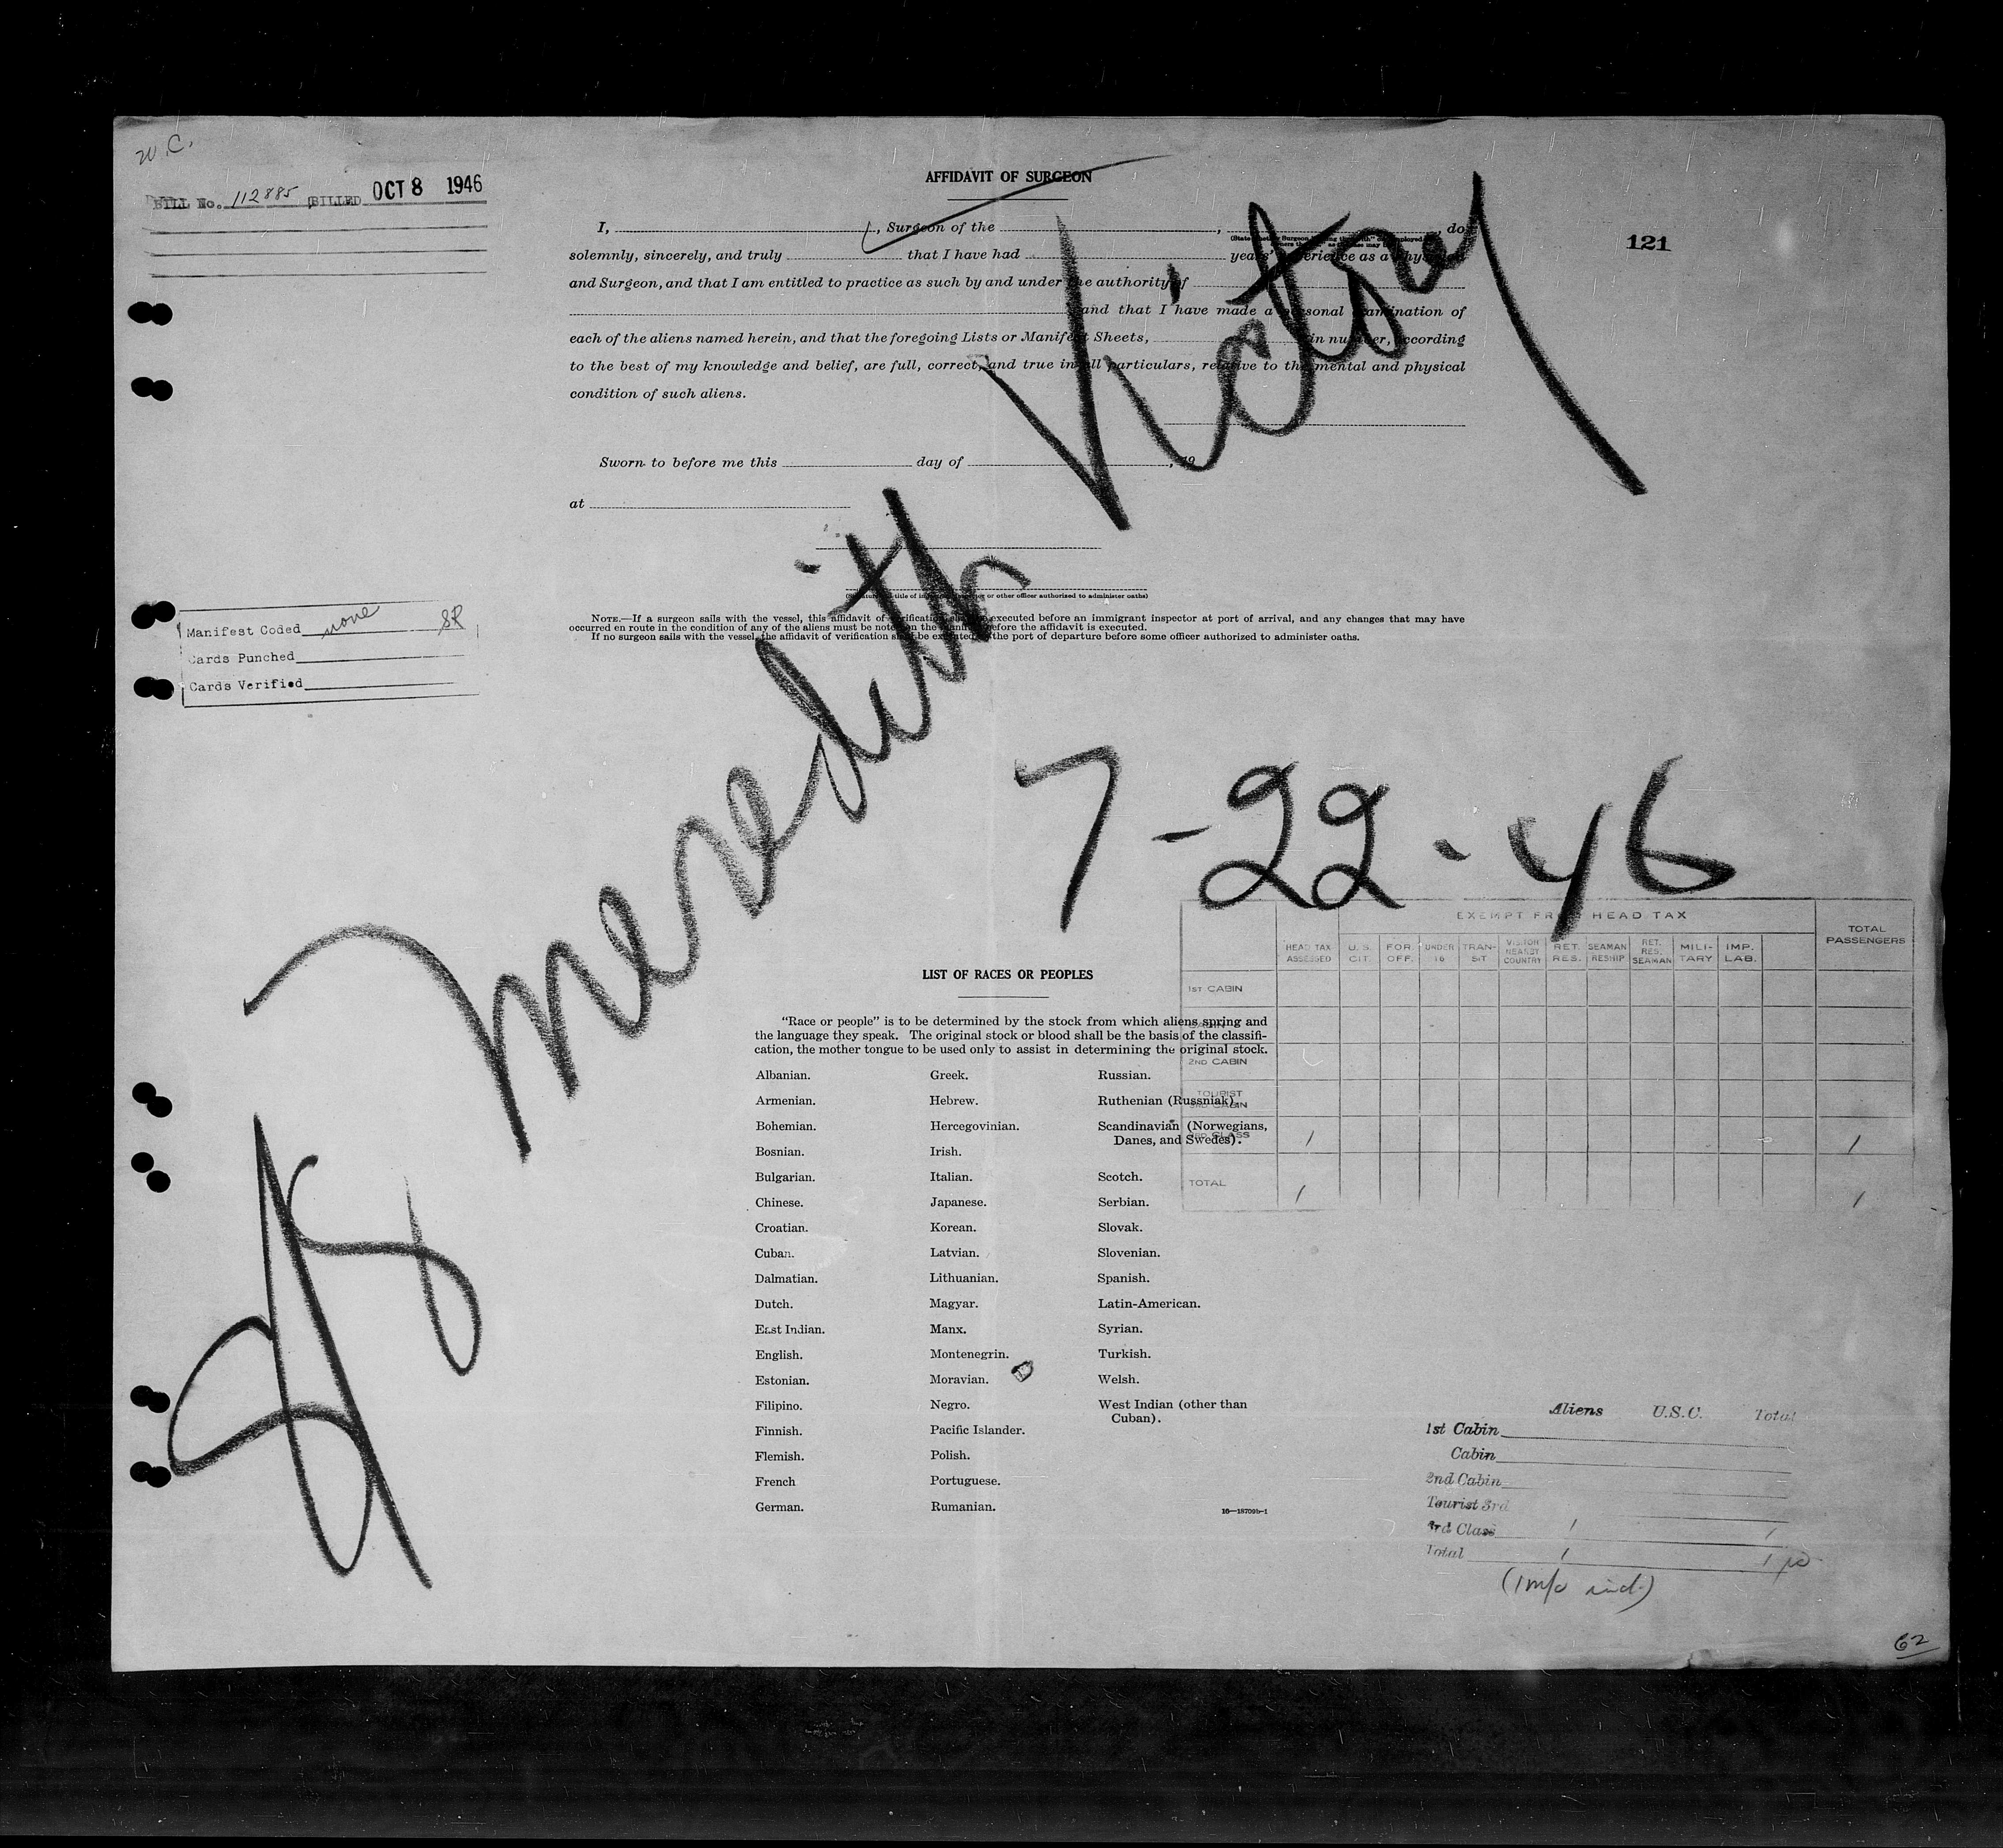 W.C.
BILL No. 112885 BILLED OCT 8 1946
AFFIDAVIT OF SURGEON
121
I, , Surgeon of the , , do
solemnly, sincerely, and truly that I have had years' experience as a Physician
and Surgeon, and that I am entitled to practice as such by and under the authority of
and that I have made a personal examination of
each of the aliens named herein, and that the foregoing Lists or Manifest Sheets, in number, according
to the best of my knowledge and belief, are full, correct, and true in all particulars, relative to the mental and physical
condition of such aliens.
Sworn to before me this day of , 19
at
(Signature and title of immigrant inspector or other officer authorized to administer oaths)
NOTE.—If a surgeon sails with the vessel, this affidavit of verification shall be executed before an immigrant inspector at port of arrival, and any changes that may have
occurred en route in the condition of any of the aliens must be noted on the manifest before the affidavit is executed.
If no surgeon sails with the vessel, the affidavit of verification shall be executed at the port of departure before some officer authorized to administer oaths.
Manifest Coded none SR
Cards Punched
Cards Verified
S/S Meredith Victory
7-22-46
EXEMPT FROM HEAD TAX
HEAD TAX ASSESSED U.S. CIT. FOR. OFF. UNDER 16 TRAN-SIT VISITOR NEARBY COUNTRY RET. RES. SEAMAN RESHIP RET. RES. SEAMAN MILI-TARY IMP. LAB. TOTAL PASSENGERS
1ST CABIN
CABIN
2ND CABIN
TOURIST
3RD CABIN
3RD CLASS 1 1
TOTAL 1 1
LIST OF RACES OR PEOPLES
"Race or people" is to be determined by the stock from which aliens spring and
the language they speak. The original stock or blood shall be the basis of the classifi-
cation, the mother tongue to be used only to assist in determining the original stock.
Albanian. Greek. Russian.
Armenian. Hebrew. Ruthenian (Russniak).
Bohemian. Hercegovinian. Scandinavian (Norwegians,
Danes, and Swedes).
Bosnian. Irish.
Bulgarian. Italian. Scotch.
Chinese. Japanese. Serbian.
Croatian. Korean. Slovak.
Cuban. Latvian. Slovenian.
Dalmatian. Lithuanian. Spanish.
Dutch. Magyar. Latin-American.
East Indian. Manx. Syrian.
English. Montenegrin. Turkish.
Estonian. Moravian. Welsh.
Filipino. Negro. West Indian (other than
Cuban).
Finnish. Pacific Islander.
Flemish. Polish.
French Portuguese.
German. Rumanian.
16—18709b-1
Aliens U.S.C. Total
1st Cabin
Cabin
2nd Cabin
Tourist 3rd
3rd Class 1 1
Total 1 1
62